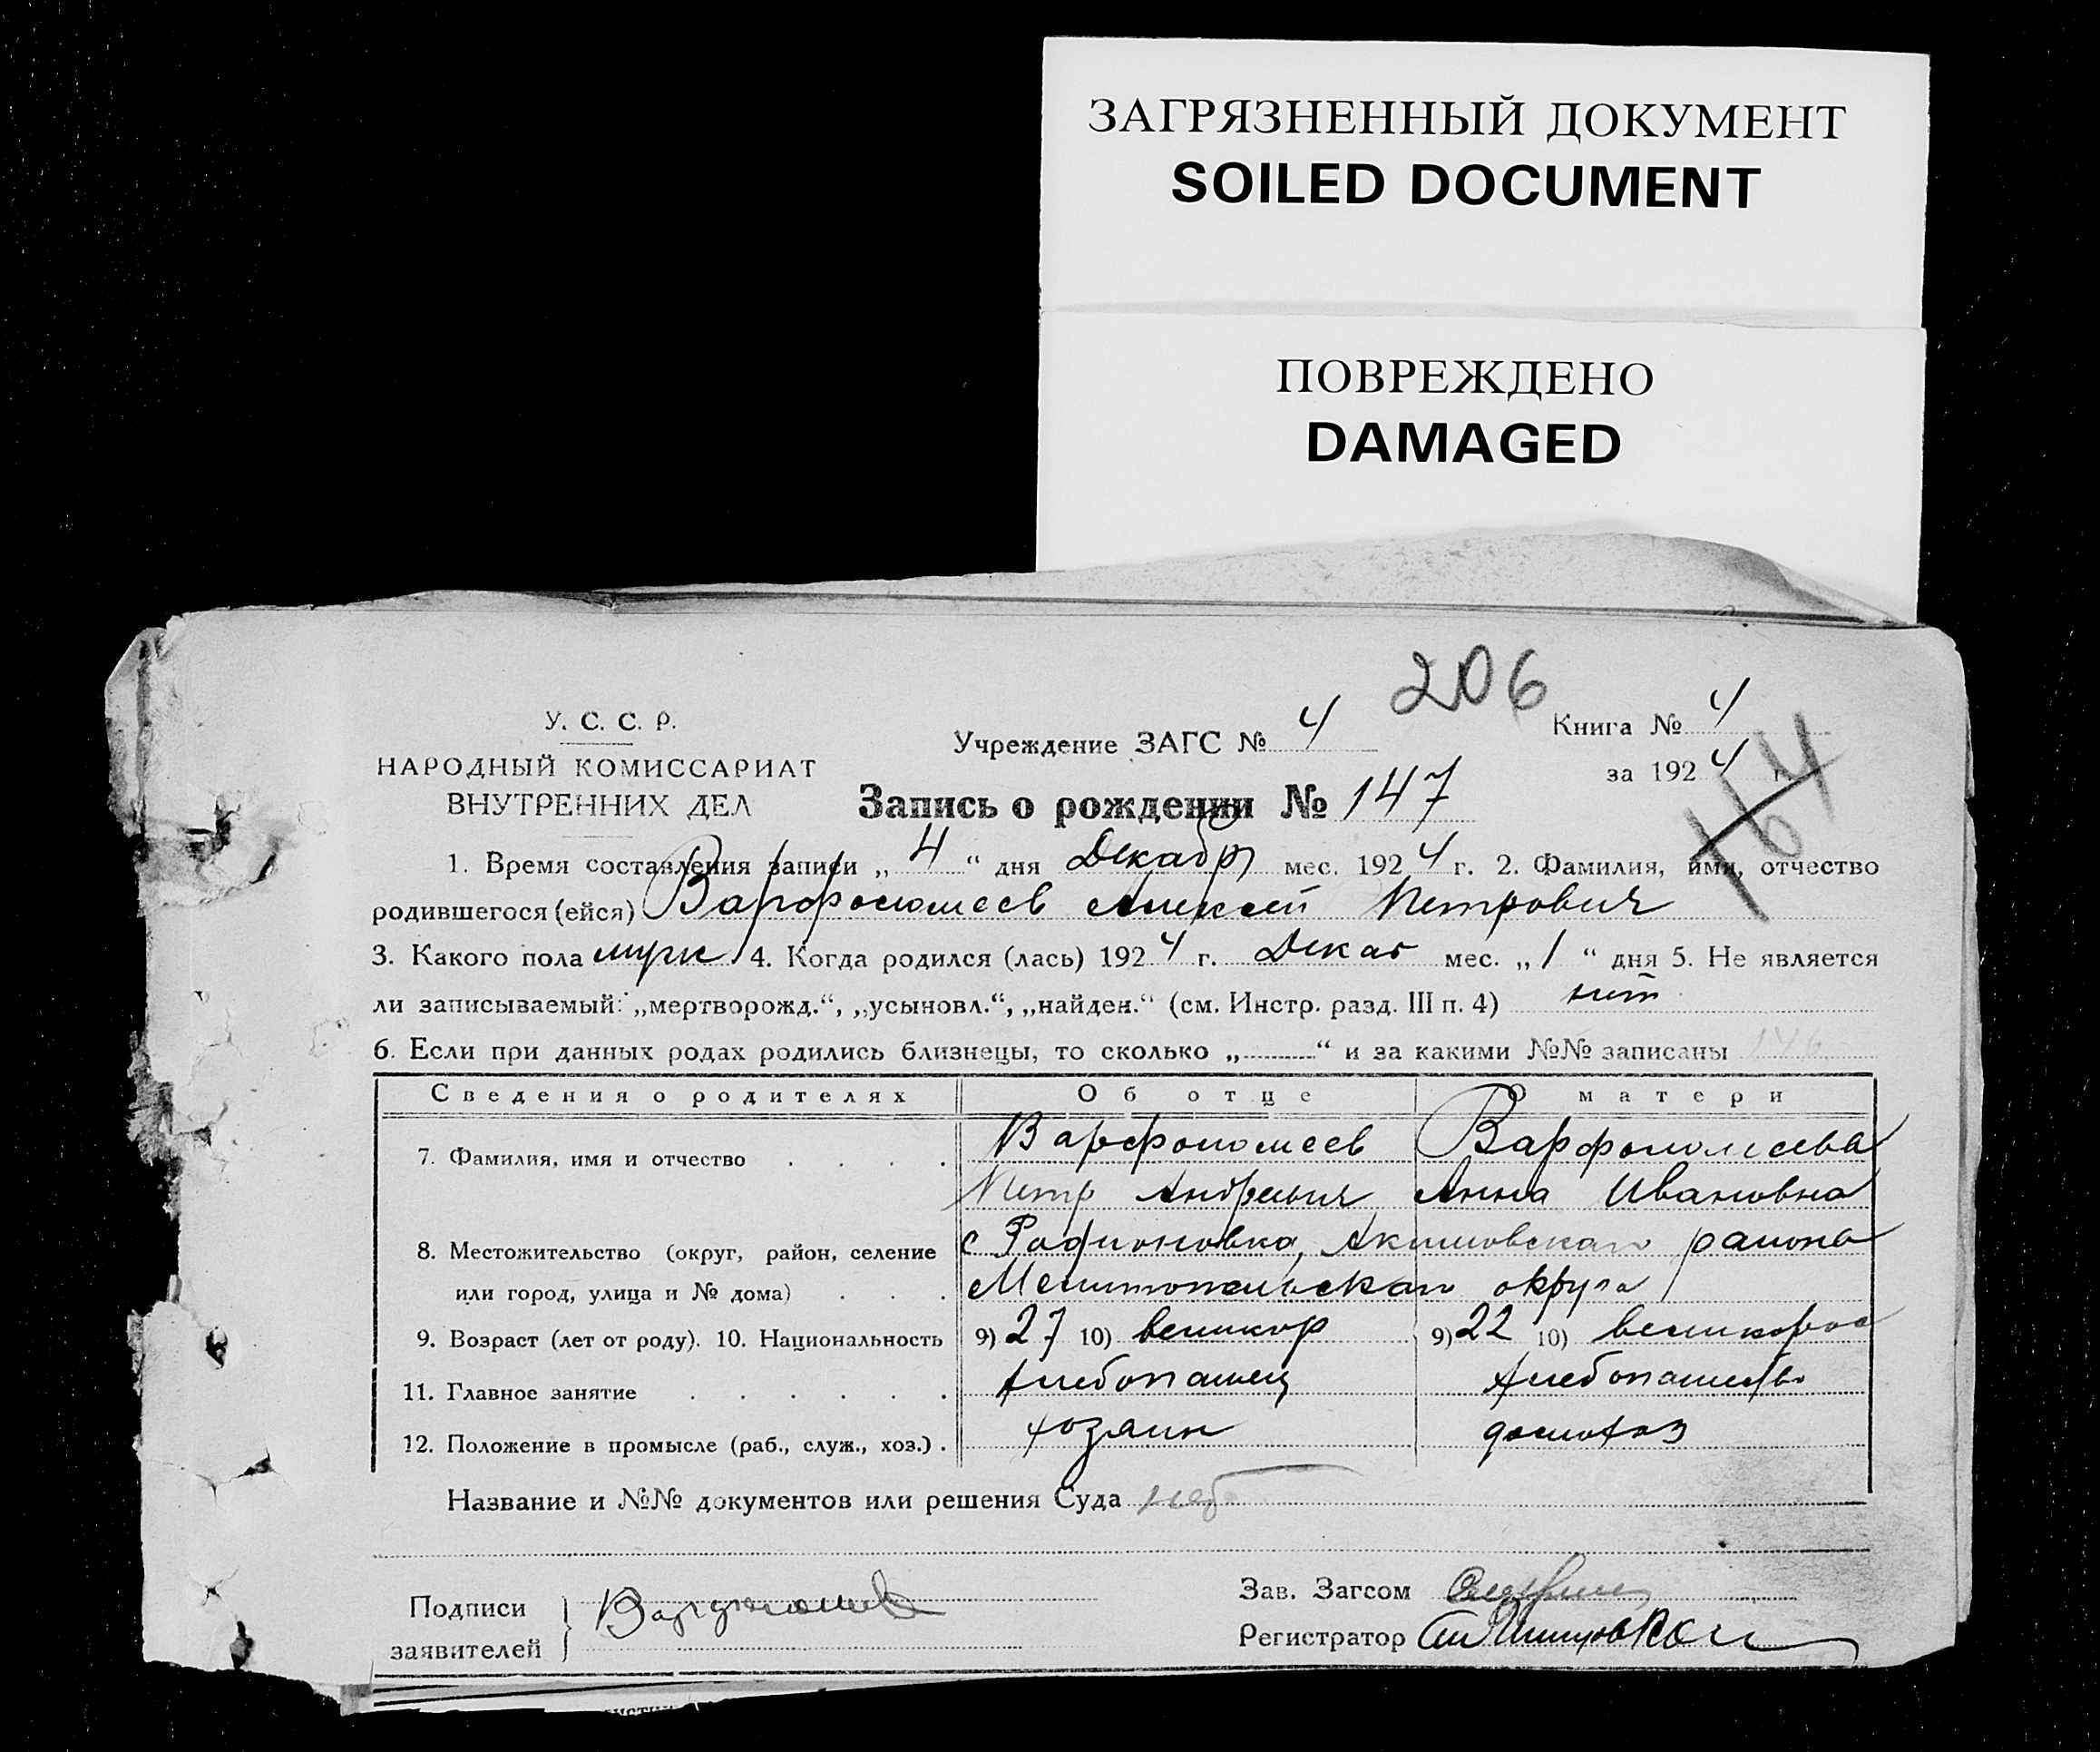 ЗАГРЯЗНЕННЫЙ ДОКУМЕНТ
SOILED DOCUMENT
ПОВРЕЖДЕНО
DAMAGED
206
У. С. С. Р.
НАРОДНЫЙ КОМИССАРИАТ
ВНУТРЕННИХ ДЕЛ
Учреждение ЗАГС № 4
Книга № 4
за 1924 г.
164
Запись о рождении № 147
1. Время составления записи „ 4 “ дня Декабр мес. 1924 г. 2. Фамилия, имя, отчество
родившегося (ейся) Варфоломеев Алексей Петрович
3. Какого пола мужс 4. Когда родился (лась) 1924 г. Декаб мес. „ 1 “ дня 5. Не является
ли записываемый: „мертворожд.“, „усыновл.“, „найден.“ (см. Инстр. разд. III п. 4) нет
6. Если при данных родах родились близнецы, то сколько „ “ и за какими №№ записаны 146
Сведения о родителях Об отце О матери
7. Фамилия, имя и отчество Варфоломеев Варфоломеева
Петр Андреевич Анна Ивановна
8. Местожительство (округ, район, селение с Родионовка, Акимовского района
или город, улица и № дома) Мелитопольского округа
9. Возраст (лет от роду). 10. Национальность 9) 27 10) великор 9) 22 10) великорос
11. Главное занятие хлебопашец хлебопашество
12. Положение в промысле (раб., служ., хоз.) хозяин домохоз
Название и №№ документов или решения Суда
Подписи
заявителей Варфоломеев
Зав. Загсом
Регистратор